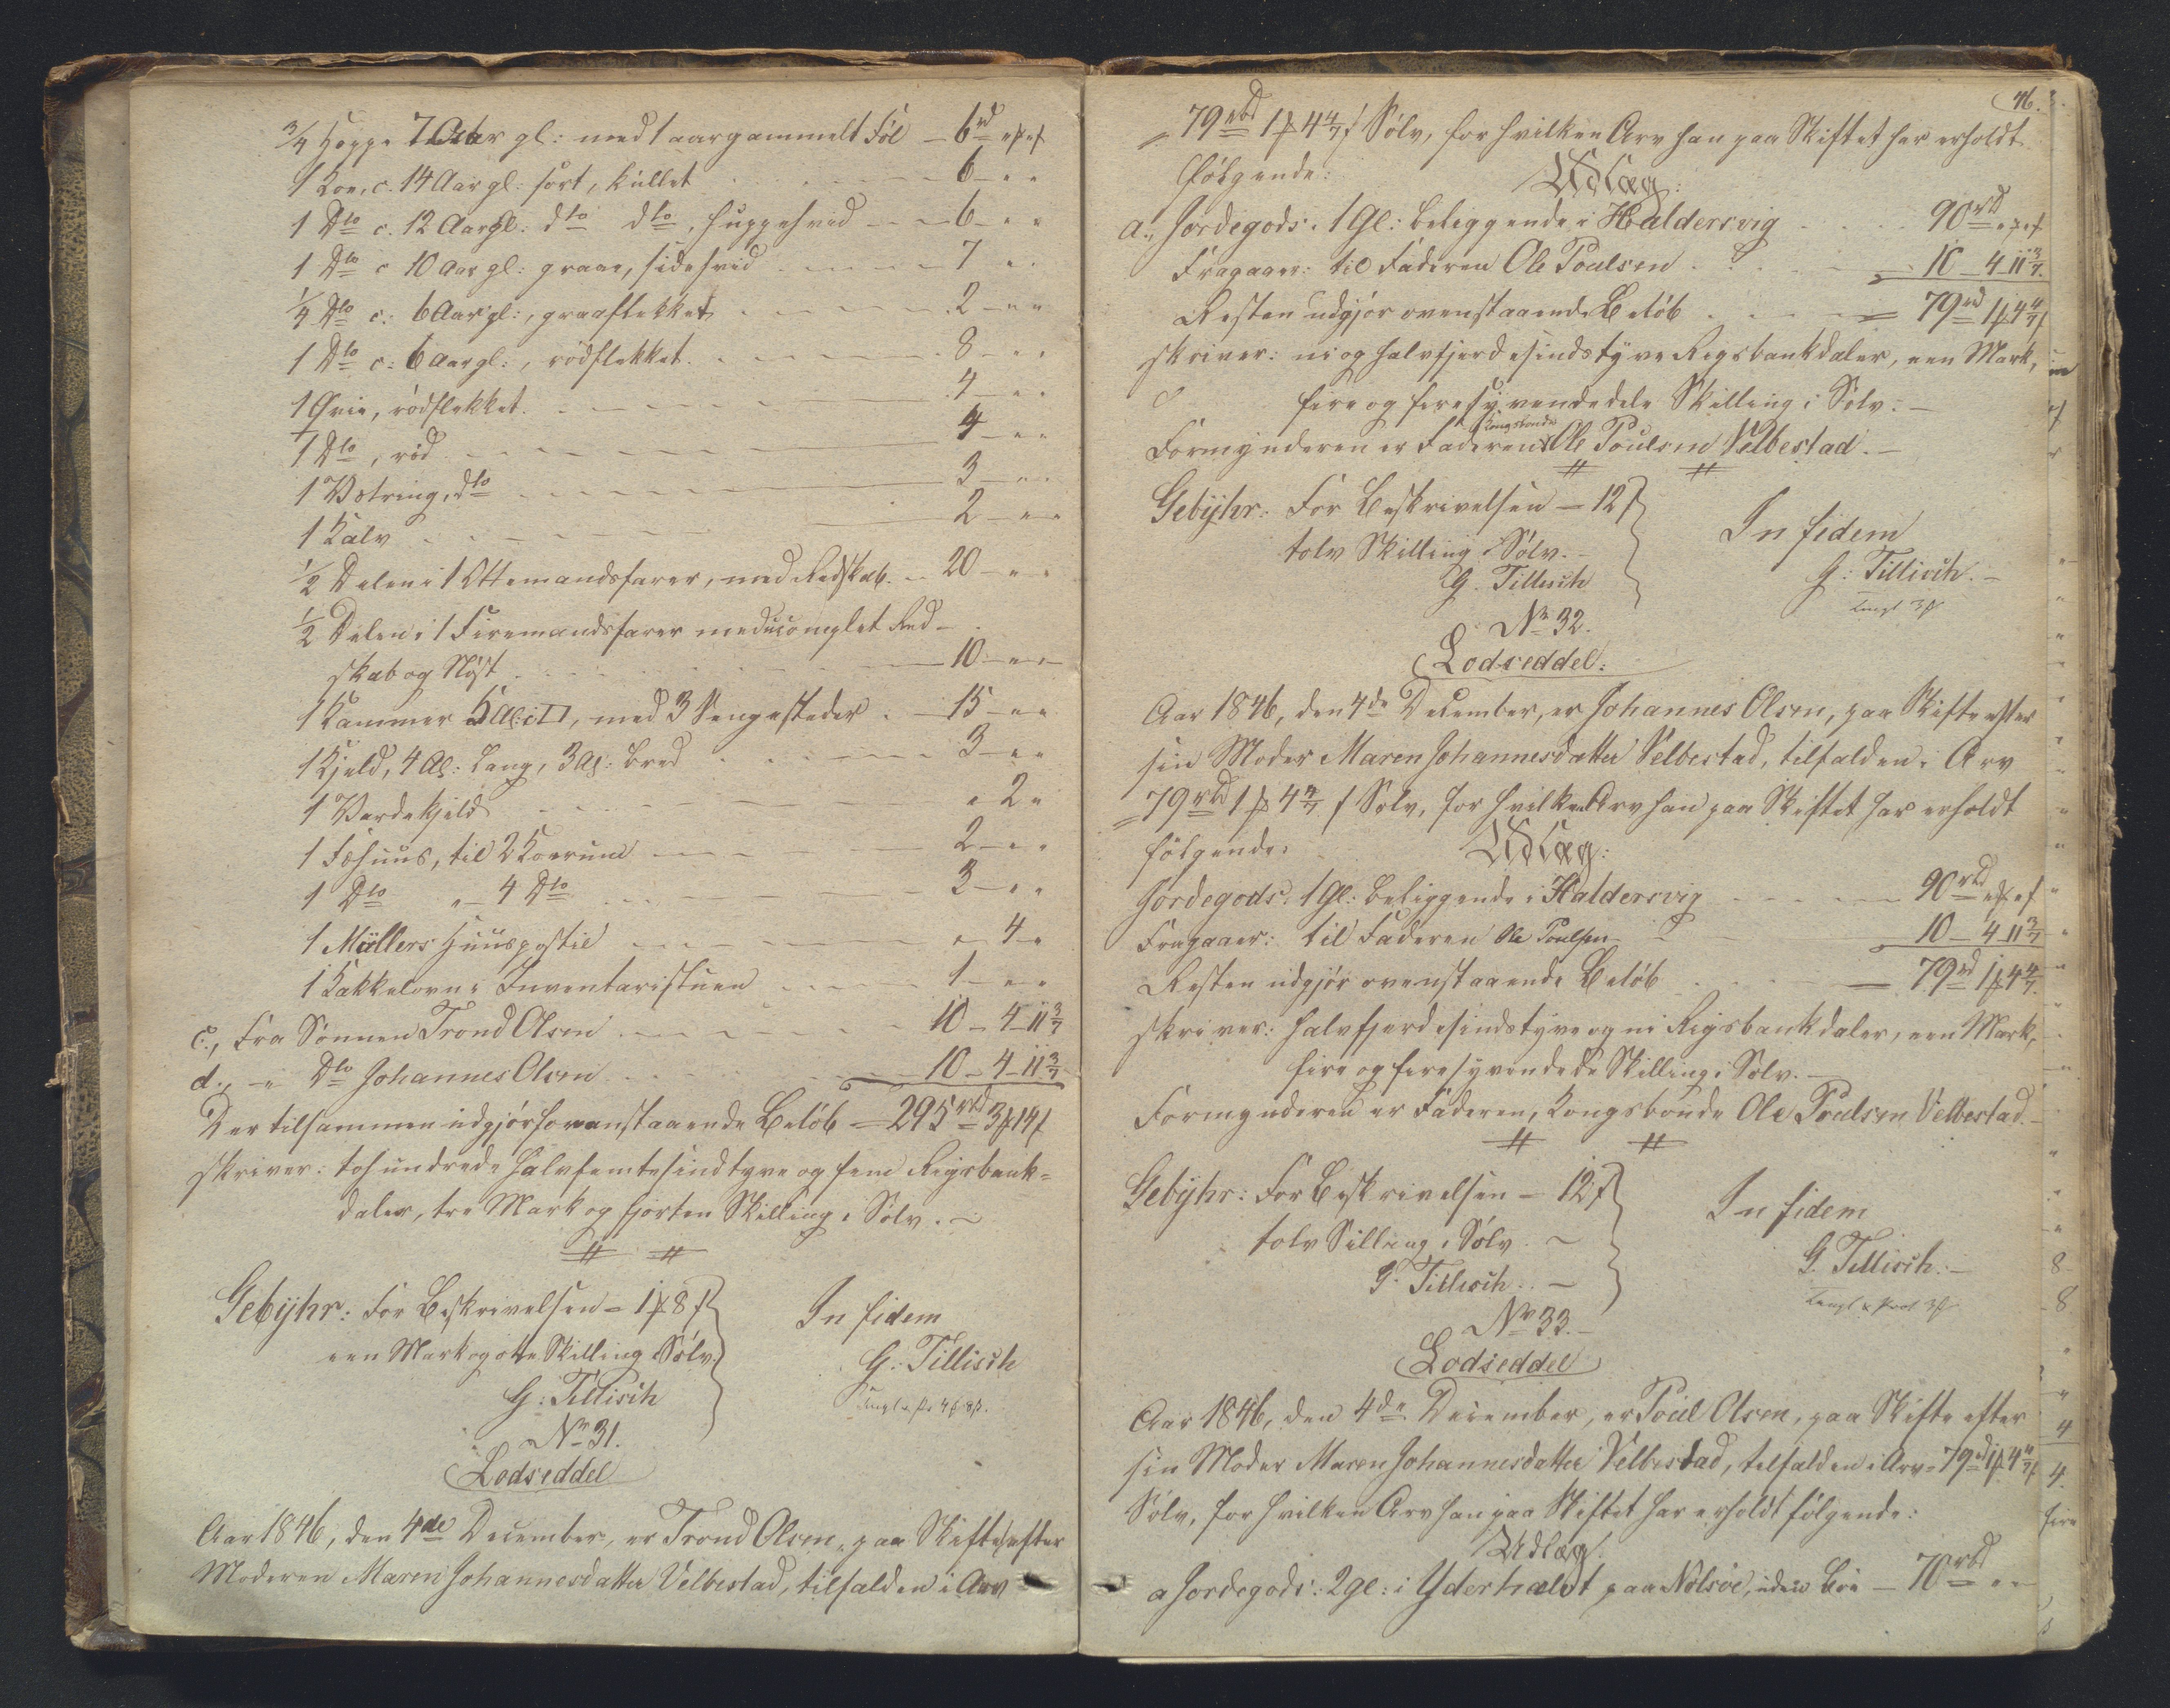 3/4 Hoppe 7 Aar gl: med 1 aargammelt Föl - 6rd " "
1 Koe, c. 14 Aar gl: sort, kullet - 6 - " "
1 Dto c. 12 Aar gl: dto dto, huppehvid - 6 - " "
1 Dto c 10 Aar gl: graae, sidehvid - 7 - " "
1/4 Dto c: 6 Aar gl:, graaflekket - 2 - " "
1 Dto c: 6 Aar gl:, rödflekket - 8 - " "
1 Qvie, rödflekket - 4 - " "
1 Dto, röd - 4 - " "
1 Vetring, dto - 3 - " "
1 Kalv - 2 - " "
1/2 Delen i 1 Ottemandsfarer, med Redskab - 20 - " "
1/2 Delen i 1 Firemandsfarer med ucomplet Red-
skab og Nöst - 10 - " "
1 Kammer 5 Al: i □, med 3 Sengesteder - 15 - " "
1 Kjeld, 4 Al: lang, 3 Al: bred - 3 - " "
1 Vardekjeld - " 2 "
1 Fæhuus, til 2 Koerum - 2 - " "
1 Dto " - 4 Dto - 3 - " "
1 Müllers Huuspostil - " - 4 - "
1 Kakkelovn i Inventariistuen - 1 - " "
c., Fra Sönnen Trond Olsen - 10 - 4 - 11 3/7
d., - " Dto Johannes Olsen - 10 - 4 - 11 3/7
Der tilsammen udgjör foranstaaende Belöb = 295rbd 3 14
skriver: tohundrede halvfemtesindtyve og fem Rigsbank-
daler, tre Mark og fjorten Skilling i Sölv. -
Gebÿhr: For Beskrivelsen = 1 8
een Mark og otte Skilling Sölv.
G: Tillisch
In fidem
G: Tillisch
No 31.
Lodseddel
Aar 1846, den 4de December, er Trond Olsen, paa Skifte efter
Moderen Maren Johannesdatter Velbestad, tilfalden i Arv
46.
79rbd 1 4 4/7 Sölv, for hvilken Arv han paa Skiftet har erholdt
fölgende:
Udlæg:
a., Jordegods: 1 Gl: beliggende i Haldersvig - 90rbd " "
Fragaaer: til Faderen Ole Poulsen - 10 - 4 - 11 3/7
Resten udgjör ovenstaaende Belöb = 79rd 1 4 4/7
skriver: ni og halvfjerdesindstyve Rigsbankdaler, een Mark,
fire og firesyvendedele Skilling i Sölv. -
Kongsbonde
Formynderen er Faderen Ole Poulsen Velbestad. -
Gebÿhr: For Beskrivelsen = 12
tolv Skilling i Sölv. -
G. Tillisch
In fidem
G: Tillisch. -
No 32.
Lodseddel:
Aar 1846, den 4de December, er Johannes Olsen, paa Skifte efter
sin Moder Maren Johannesdatter Velbestad, tilfalden i Arv
79rbd 1 4 4/7 Sölv, for hvilken Arv han paa Skiftet har erholdt
fölgende:
Udlæg:
Jordegods: 1 Gl: beliggende i Haldersvig - 90rbd " "
Fragaaer: til Faderen Ole Poulsen - 10 - 4 - 11 3/7
Resten udgjör ovenstaaende Belöb = 79rd 1 4 4/7
skriver: halvfjerdesindstyve og ni Rigsbankdaler, een Mark,
fire og firesyvendede Skilling i Sölv. -
Formynderen er Faderen, Kongsbonde Ole Poulsen Velbestad. -
Gebÿhr: For Beskrivelsen = 12
tolv Silling i Sölv. -
G. Tillisch. -
In fidem
G. Tillisch. -
No 33. -
Lodseddel
Aar 1846, den 4de December, er Poul Olsen, paa Skifte efter
sin Moder Maren Johannesdatter Velbestad, tilfalden i Arv = 79rd 1 4 4/7
Sölv, for hvilken Arv han paa Skiftet har erholdt fölgende:
Udlæg.
a Jordegods: 2 Gl: i Yderhalvt paa Nolsöe, uden Böe - 70rbd " "